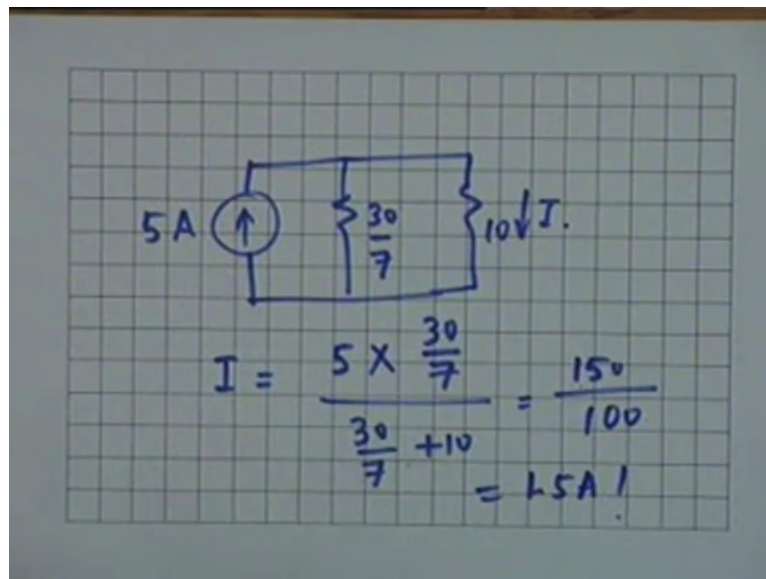 5A
30
7
10 I.
I = 5 X 30/7
30/7 + 10
= 150/100
= 1.5A!